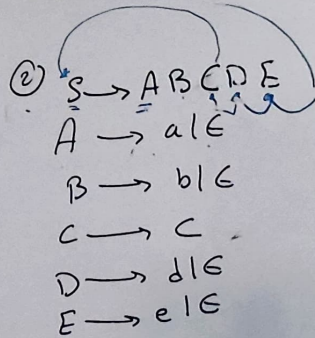 ② S → A B C D E
A → a | ϵ
B → b | ϵ
C → C
D → d | ϵ
E → e | ϵ